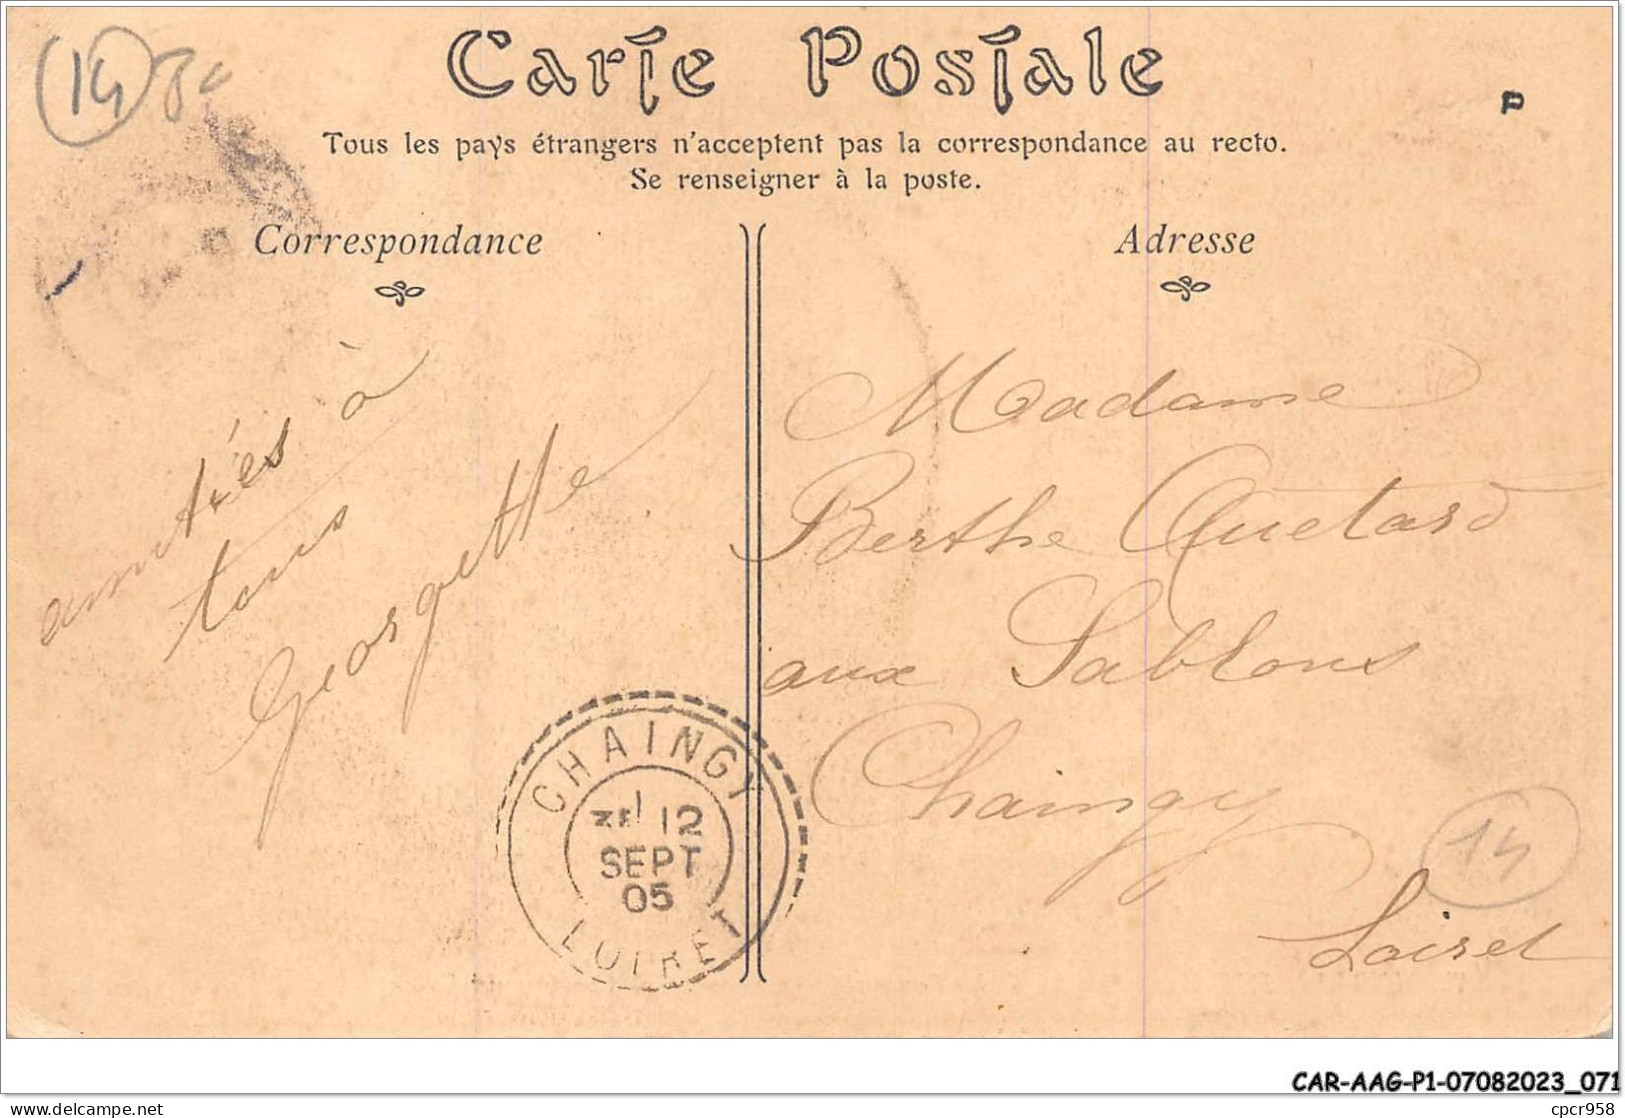 14
Carte Postale
P
Tous les pays étrangers n'acceptent pas la correspondance au recto.
Se renseigner à la poste.
Correspondance
Adresse
amitiés à
tous
Georgette
Madame
Berthe Quétard
aux Sablons
Chaingy
Loiret
14
CHAINGY
12
SEPT
05
LOIRET
CAR-AAG-P1-07082023_071
cpcr958